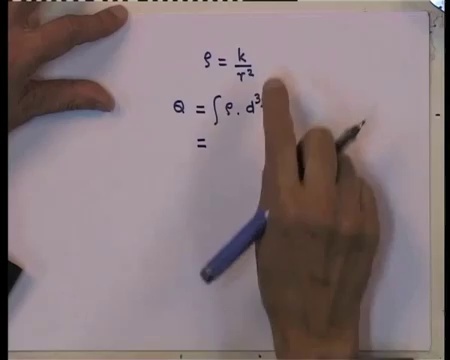 ρ = k/r²
Q = ∫ ρ . d³
=